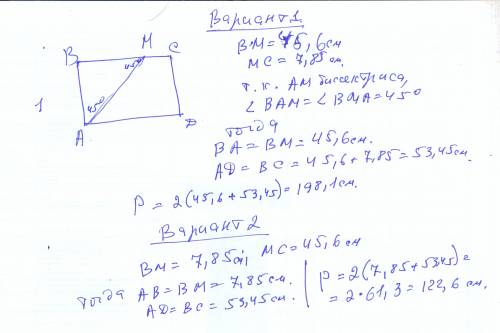 Вариант 1.
B M C
45°
1
45°
A D
BM = 45,6 см
MC = 7,85 см.
т.к. AM биссектриса,
∠BAM = ∠BMA = 45°
тогда
BA = BM = 45,6 см.
AD = BC = 45,6 + 7,85 = 53,45 см.
P = 2(45,6 + 53,45) = 198,1 см.
Вариант 2
BM = 7,85 см, MC = 45,6 см
тогда AB = BM = 7,85 см.
AD = BC = 53,45 см.
P = 2(7,85 + 53,45) =
= 2·61,3 = 122,6 см.